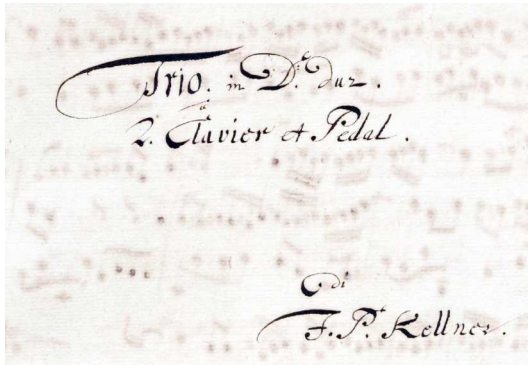 Trio. in D. dur.
a
2. Clavier et Pedal.
di
J. P. Kellner.